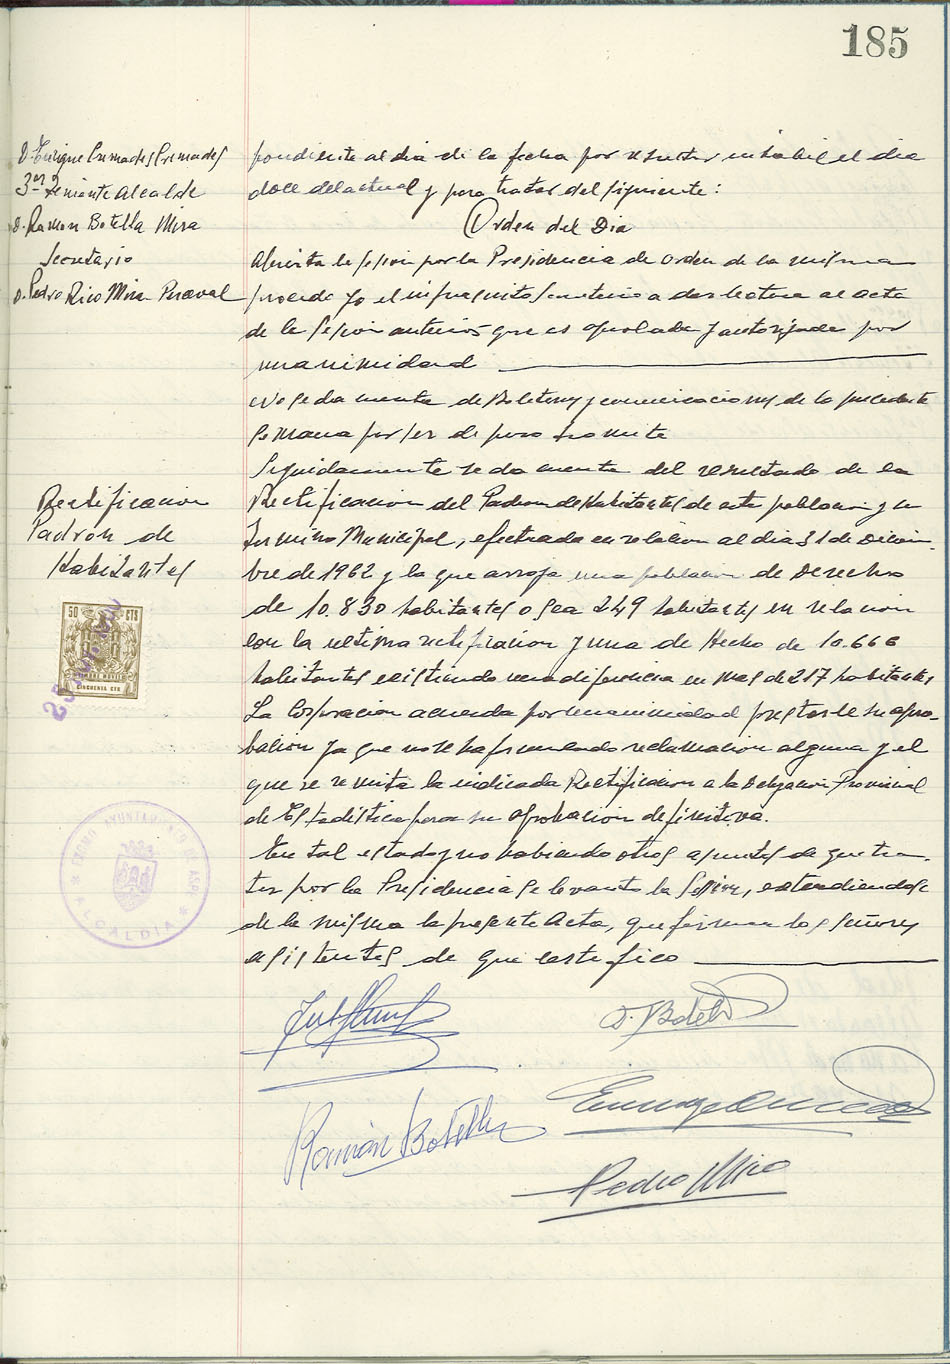 185
D. Enrique Cremades Cremades
3er Teniente Alcalde
D. Ramon Botella Mira
Secretario
D. Pedro Rico Mira Perceval
pondiente al dia de la fecha por resultar inhabil el dia
doce del actual y para tratar del siguiente:
Orden del Dia
Abierta la sesion por la Presidencia de orden de la misma
procedo yo el infrascrito Secretario a dar lectura al acta
de la sesion anterior que es aprobada y autorizada por
unanimidad
No se da cuenta de Boletines y comunicaciones de la precedente
semana por ser de puro tramite
Seguidamente se da cuenta del resultado de la
Rectificacion
Padrón de
Habitantes
Rectificacion del Padron de Habitantes de esta poblacion y su
Termino Municipal, efectuada en relacion al dia 31 de Diciem-
bre de 1962 y la que arroja una poblacion de Derecho
de 10.830 habitantes o sea 249 habitantes en relacion
con la ultima rectificacion y una de Hecho de 10.666
habitantes existiendo una diferencia en mas de 217 habitantes
La Corporacion acuerda por unanimidad prestarle su apro-
bacion ya que no se ha formulado reclamacion alguna y el
que se remita la indicada Rectificacion a la Delegacion Provincial
de Estadistica para su aprobacion definitiva.
En tal estado y no habiendo otros asuntos de que tra-
tar por la Presidencia se levanta la Sesión, extendiendose
de la misma la presente Acta, que firman los señores
asistentes de que certifico
50 CTS
CINCUENTA CTS
EXCMO AYUNTAMIENTO DE ASPE
* ALCALDIA *
D. Botella
Ramón Botella
Enrique Cremades
Pedro Mira